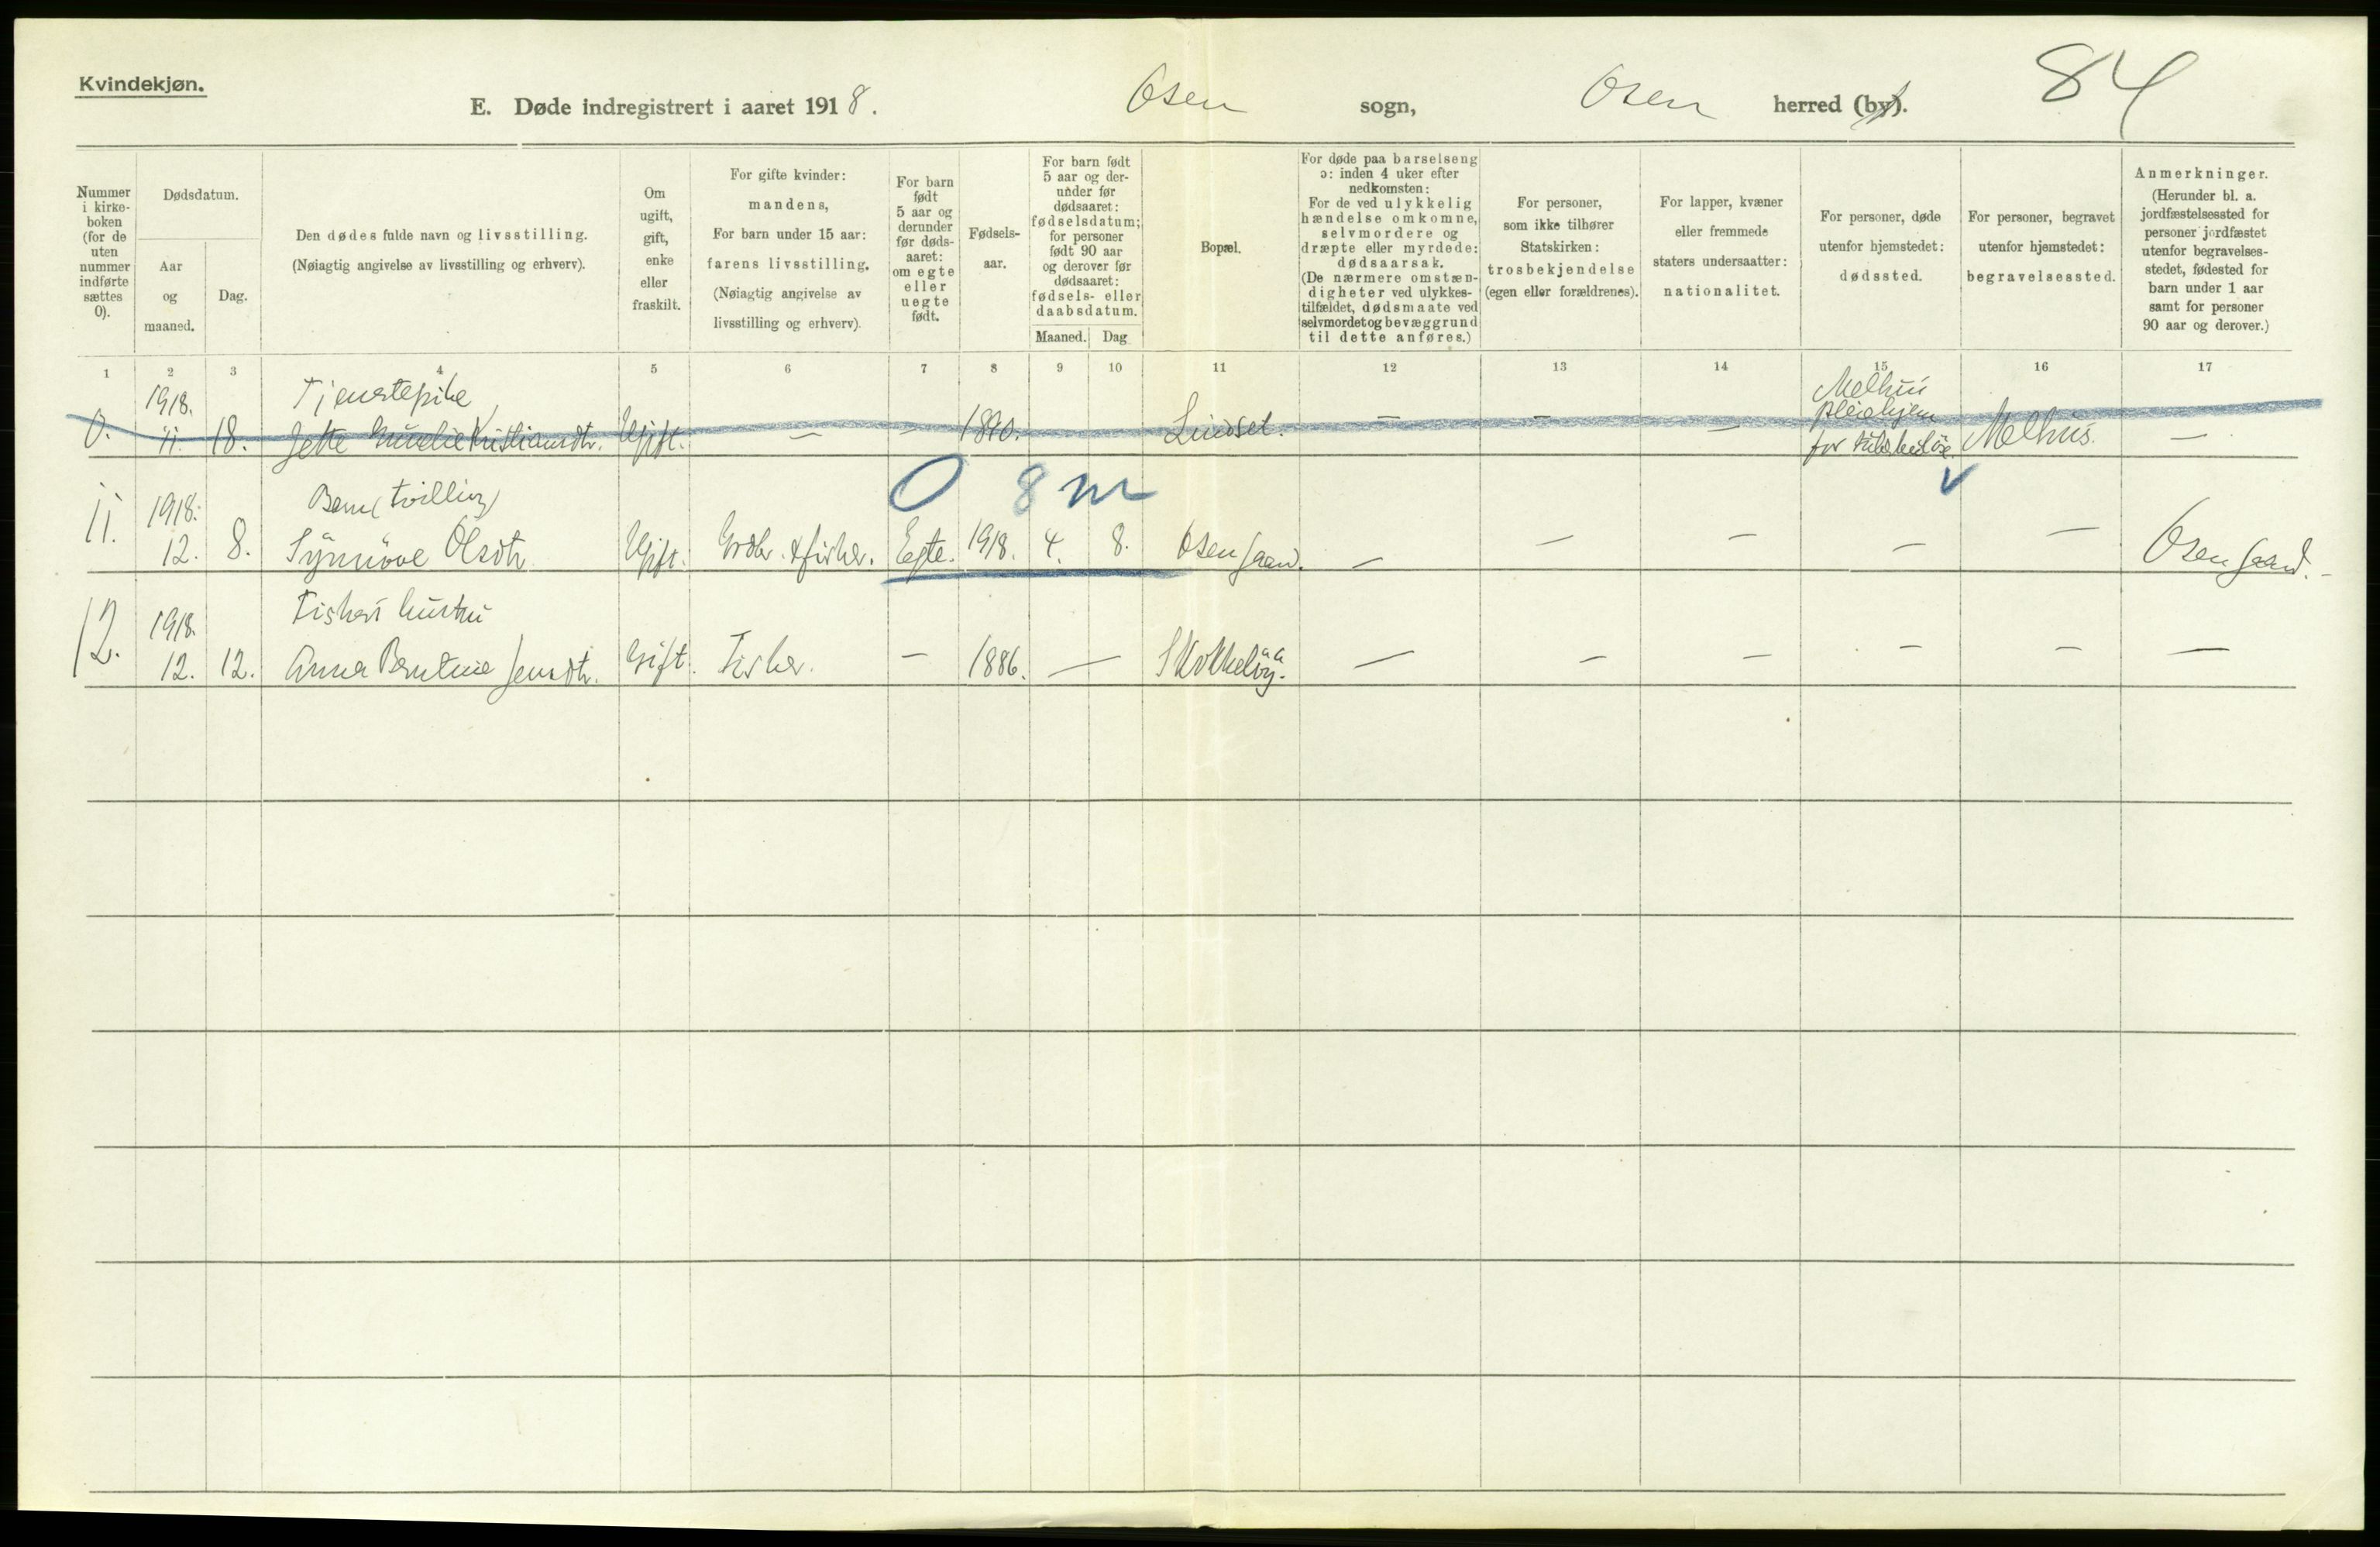 Kvindekjøn.
E. Døde indregistrert i aaret 1918. Osen sogn, Osen herred (by).
84
Nummer i kirke-boken (for de uten nummer indførte sættes 0).
Dødsdatum.
Aar og maaned.
Dag.
Den dødes fulde navn og livsstilling.
(Nøiagtig angivelse av livsstilling og erhverv).
Om ugift, gift, enke eller fraskilt.
For gifte kvinder: mandens,
For barn under 15 aar: farens livsstilling.
(Nøiagtig angivelse av livsstilling og erhverv).
For barn født 5 aar og derunder før døds-aaret: om egte eller uegte født.
Fødsels-aar.
For barn født 5 aar og der-under før dødsaaret: fødselsdatum; for personer født 90 aar og derover før dødsaaret: fødsels- eller daabsdatum.
Maaned. Dag
Bopæl.
For døde paa barselseng ɔ: inden 4 uker efter nedkomsten:
For de ved ulykkelig hændelse omkomne, selvmordere og dræpte eller myrdede: dødsaarsak.
(De nærmere omstæn-digheter ved ulykkes-tilfældet, dødsmaate ved selvmordet og bevæggrund til dette anføres.)
For personer, som ikke tilhører Statskirken: trosbekjendelse (egen eller forældrenes).
For lapper, kvæner eller fremmede staters undersaatter: nationalitet.
For personer, døde utenfor hjemstedet: dødssted.
For personer, begravet utenfor hjemstedet: begravelsessted.
Anmerkninger.
(Herunder bl. a. jordfæstelsessted for personer jordfæstet utenfor begravelses-stedet, fødested for barn under 1 aar samt for personer 90 aar og derover.)
1 2 3 4 5 6 7 8 9 10 11 12 13 14 15 16 17
1918. Tjenestepike Melhus pleiehjem
0. 11. 18. Jette Kristiansdtr. Ugift. — — 1890. Lindset. — — — for Melhus. —
0 8 m
1918. Barn (tvilling)
11. 12. 8. Synnöve Olsdtr. Ugift. Grdbr. & fisker. Egte. 1918. 4. 8. Osen gaard. — — — — — Osen gaard. —
1918. Fiskers hustru
12. 12. 12. Anna Berntine Jensdtr. Gift. Fisker. — 1886. — — — — — — —